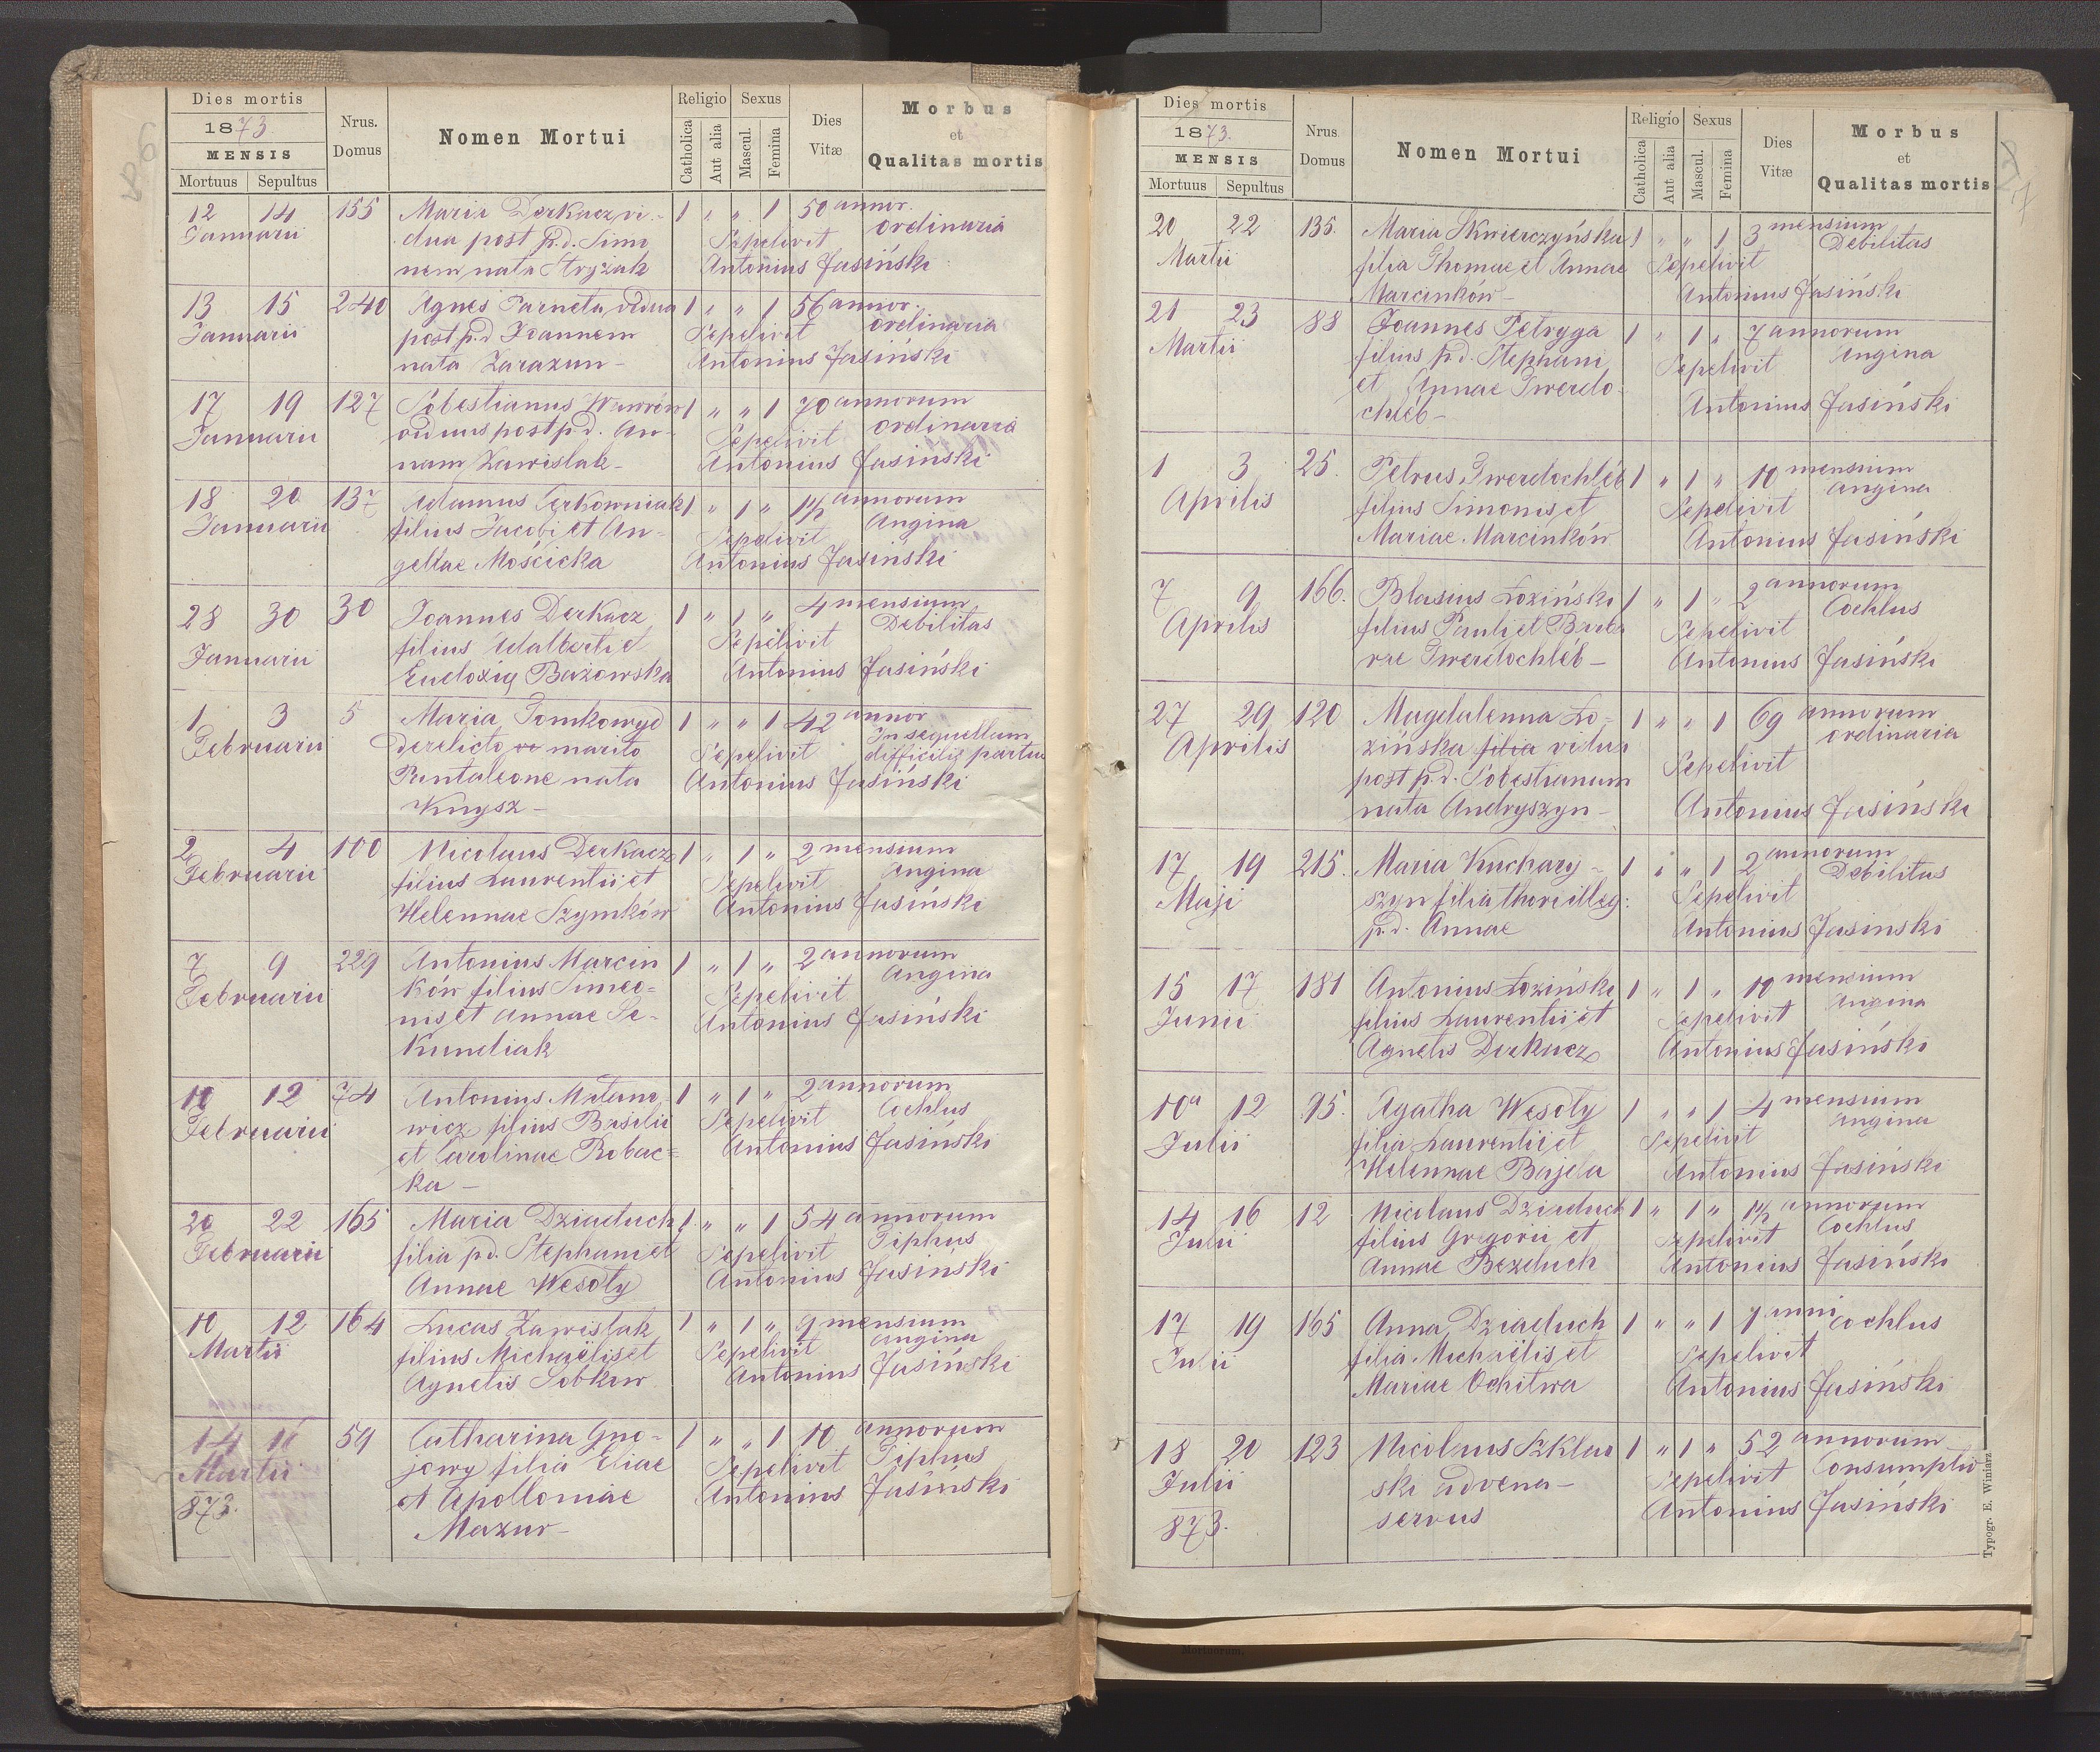 Dies mortis
1873.
MENSIS
Mortuus Sepultus
Nrus. Domus
Nomen Mortui
Religio
Catholica
Aut alia
Sexus
Mascul.
Femina
Dies Vitæ
Morbus
et
Qualitas mortis
12 14 155 Maria Derkacz vi- 1 " " 1 50 annor.
Januarii dua post p.d. Simo Sepelivit ordinaria
nem nata Stryżak Antonius Jasiński
13 15 240 Agnes Parneta vidua 1 " " 1 56 annor.
Januarii post p.d Joannem Sepelivit ordinaria
nata Zarazun - Antonius Jasiński
17 19 127 Sobestianus 1 " " 1 70 annorum
Januarii viduus post p.d. An- Sepelivit ordinaria
nam Zawislak - Antonius Jasinski
18 20 137 Adamus Cerkowniak 1 " 1 " 1½ annorum
Januarii filius Jacobi et An- Sepelivit Angina
gellae Mościcka Antonius Jasiński
28 30 30 Joannes Derkacz 1 " 1 " 4 mensium
Januarii filius Adalberti et Sepelivit Debilitas
Eudoxią Bażowska Antonius Jasiński
1 3 5 Maria Tomkowyd 1 " " 1 42 annor
Februarii Derelicto ro marito Sepelivit In sequellam difficilis partus
Pantaleone nata Antonius Jasiński
Knysz -
2 4 100 Nicolaus Derkacz 1 " 1 " 2 mensium
Februarii filius Laurentii et Sepelivit Angina
Helennae Szymków Antonius Jasiński
7 9 229 Antonius Marcin 1 " 1 " 2 annorum
Februarii ków filius Simeo= Sepelivit Angina
nis et Annae Se- Antonius Jasiński
kundiak
10 12 74 Antonius Milano- 1 " 1 " 2 annorum
Februarii wicz filius Basilii Sepelivit Cochlus
et Carolinae Robac= Antonius Jasiński
ka -
20 22 165 Maria Dziaduch 1 " " 1 54 annorum
Februarii filia p.d. Stephani et Sepelivit Tiphus
Annae Wesoły Antonius Jasiński
10 12 164 Lucas Zawislak 1 " 1 " 9 mensium
Martii filius Michaëlis et Sepelivit angina
Agnetis Sobkow Antonius Jasiński
14 16 59 Catharina Gno- 1 " " 1 10 annorum
Martii jowy filia Eliae Sepelivit Tiphus
873. et Apolloniae Antonius Jasiński
Mazur -
Dies mortis
1873.
MENSIS
Mortuus Sepultus
Nrus Domus
Nomen Mortui
Religio
Catholica
Aut alia
Sexus
Mascul.
Femina
Dies Vitæ
Morbus
et
Qualitas mortis
20 22 135. Maria Skwierczyńska 1 " " 1 3 mensium
Martii filia Thomae et Annae Sepelivit Debilitas
Marcinków - Antonius Jasiński
21 23 88 Joannes Petryga 1 " 1 " 7 annorum
Martii filius p.d. Stephani Sepelivit Angina
et Annae Twerdo- Antonius Jasiński
chleb -
1 3 25. Petrus Twerdochléb 1 " 1 " 10 mensium
Aprilis filius Simonis et Sepelivit angina
Mariae Marcinków Antonius Jasiński
7 9 166. Blasius Łoziński 1 " 1 " 2 annorum
Aprilis filius Pauli et Barba Sepelivit Cochlus
rae Twerdochléb - Antonius Jasiński
27 29 120 Magdalenna Ło- 1 " " 1 69 annorum
Aprilis zińska filia vidua Sepelivit ordinaria
post p.d. Sobestianum
nata Andryszyn - Antonius Jasiński
17 19 215. Maria Kuchary- 1 " " 1 2 annorum
Maji szyn filia thori illeg: Sepelivit Debilitas
p.d. Annae Antonius Jasinski
15 17 181 Antonius Łoziński 1 " 1 " 10 mensium
Junii filius Laurentii et Sepelivit Angina
Agnetis Derkacz Antonius Jasiński
10a 12 95. Agatha Wesoły 1 " " 1 4 mensium
Julii filia Laurentii et Sepelivit Angina
Helennae Bajela Antonius Jasiński
14 16 12 Nicolaus Dziaduch 1 " 1 " 1½ annorum
Julii filius Gregorii et Sepelivit Cochlus
Annae Bezduch Antonius Jasiński
17 19 165 Anna Dziaduch 1 " " 1 1 anni Cochlus
Julii filia Michaëlis et Sepelivit
Mariae Ochitwa Antonius Jasiński
18 20 123 Nicolaus Szklar 1 " 1 " 52 annorum
Julii ski advena - Sepelivit Consumptio
873. servus Antonius Jasiński
Typogr. E. Winiarz
Mortuorum.